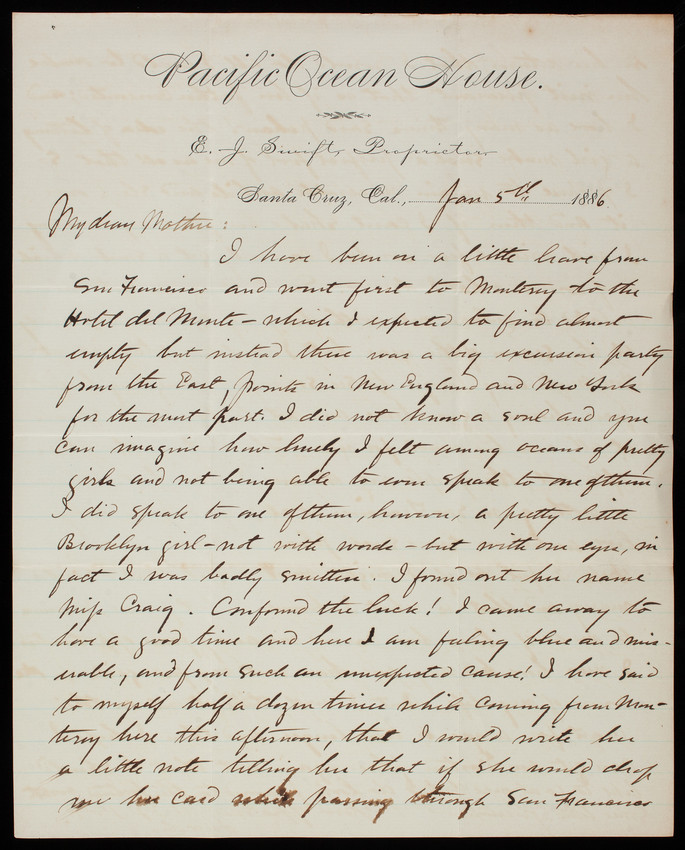 Pacific Ocean House.
E. J. Swift, Proprietor
Santa Cruz, Cal., Jan 5th 1886.
My dear Mother:
I have been on a little leave from
San Francisco and went first to Monterey to the
Hotel del Monte - which I expected to find almost
empty but instead there was a big excursion party
from the East, points in New England and New York
for the most part. I did not know a soul and you
can imagine how lonely I felt among oceans of pretty
girls and not being able to even speak to one of them.
I did speak to one of them, however, a pretty little
Brooklyn girl - not with words - but with our eyes, in
fact I was badly smitten. I found out her name
Miss Craig. Confound the luck! I came away to
have a good time and here I am feeling blue and mis-
erable, and from such an unexpected cause! I have said
to myself half a dozen times while coming from Mon-
terey here this afternoon, that I would write her
a little note telling her that if she would drop
me her card while passing through San Francisco